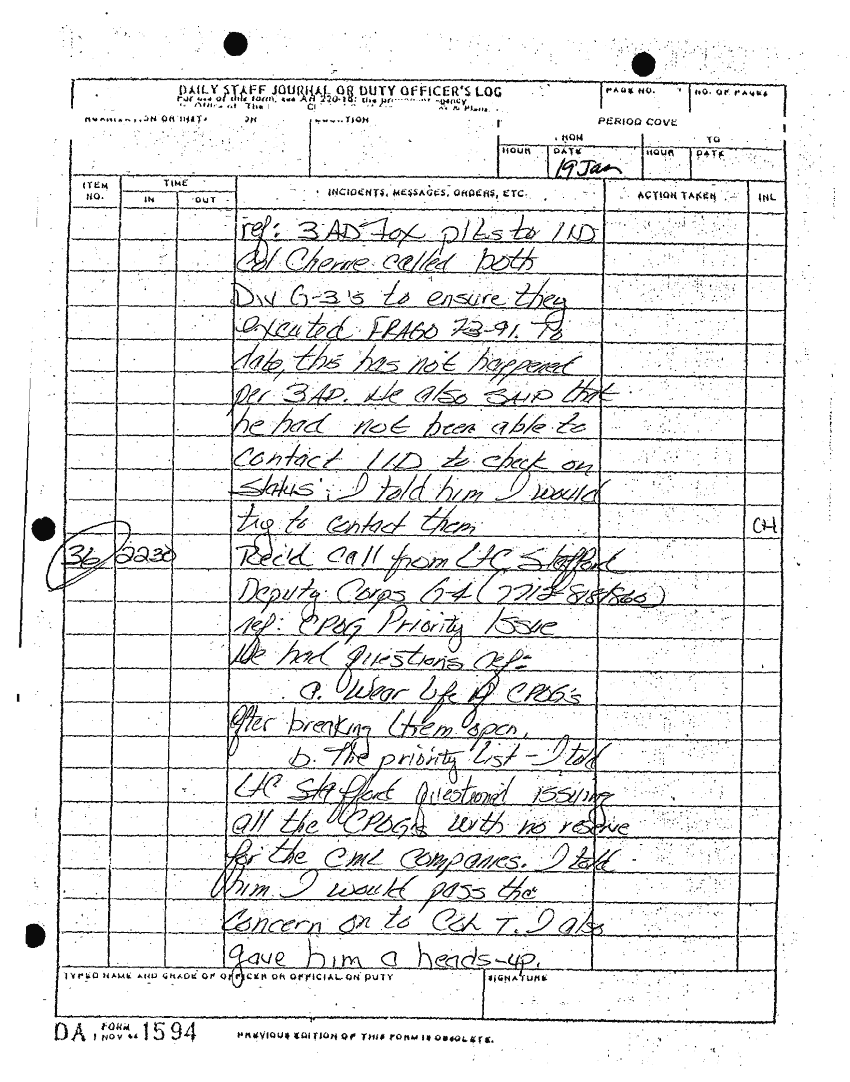 DAILY STAFF JOURNAL OR DUTY OFFICER'S LOG
PAGE NO.
NO. OF PAGES
For use of this form, see AR 220-15; the agency
Office of The
PERIOD COVE
TO
HOUR DATE HOUR DATE
19 Jan
ITEM NO.
TIME
IN OUT
INCIDENTS, MESSAGES, ORDERS, ETC.
ACTION TAKEN
INL
ref: 3AD Fox plts to 1ID
Col Cherrie called both
Div G-3's to ensure they
executed FRAGO 73-91. To
date, this has not happened
per 3AD. He also said that
he had not been able to
contact 1ID to check on
status; I told him I would
try to contact them CH
36 2230 Rec'd call from LTC Stafford
Deputy Corps G-4
ref: CPOG Priority Issue
We had questions ref:
a. Wear life of CPOG's
after breaking them open,
b. The priority list - I told
LTC Stafford questioned issuing
all the CPOG's with no reserve
for the CML companies. I told
him I would pass the
concern on to Col T. I also
gave him a heads-up.
TYPED NAME AND GRADE OF OFFICER OR OFFICIAL ON DUTY
SIGNATURE
DA FORM 1 NOV 1594
PREVIOUS EDITION OF THIS FORM IS OBSOLETE.